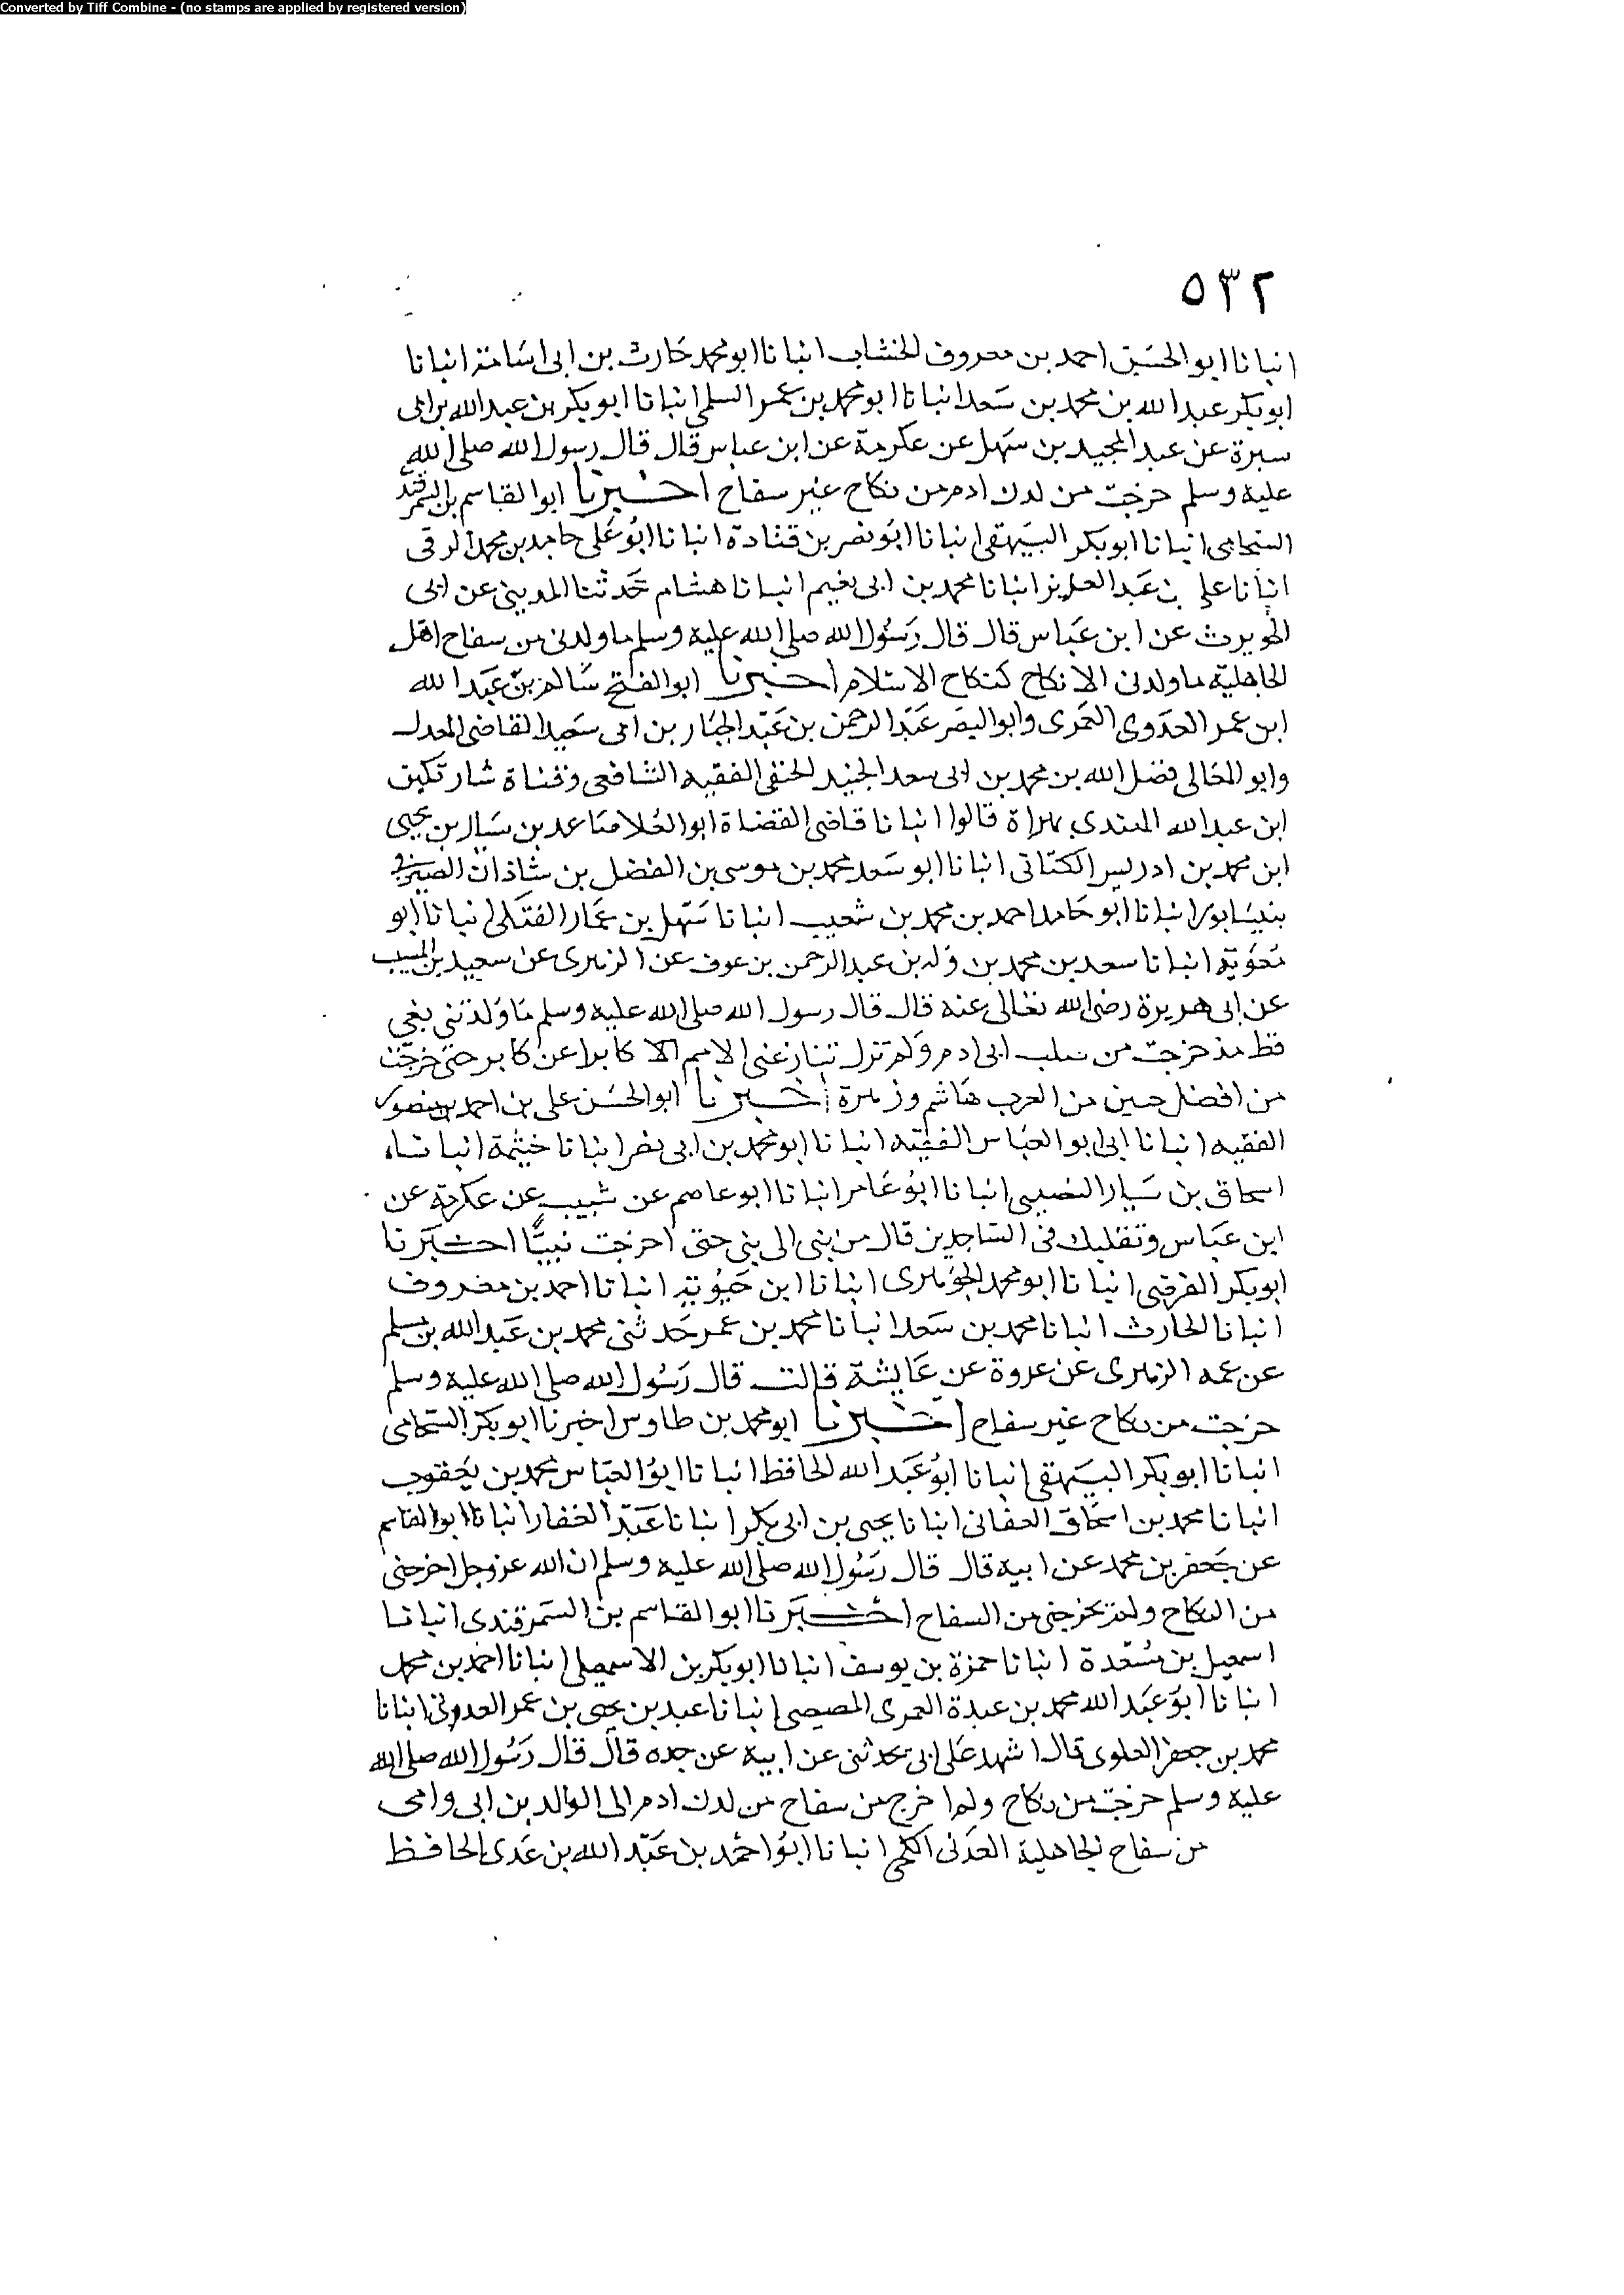 Converted by Tiff Combine - (no stamps are applied by registered version)
٥٣٢
انبانا ابو الحسين احمد بن معروف الخشاب انبانا ابو محمد حارث بن ابى اسامة انبانا
ابو بكر عبد الله بن محمد بن سعد انبانا ابو محمد بن عمر السلمى انبانا ابو بكر بن عبد الله بن ابى
سبرة عن عبد المجيد بن سهل عن عكرمة عن ابن عباس قال قال رسول الله صلى الله
عليه وسلم خرجت من لدن ادم من نكاح غير سفاح اخبرنا ابو القاسم بن السمرقند
الشحامى انبانا ابو بكر البيهقى انبانا ابو نصر بن قتادة انبانا ابو على حامد بن محمد الرقى
انبانا على بن عبد العزيز انبانا محمد بن ابى نعيم انبانا هشام حدثنا المدينى عن ابى
الحويرث عن ابن عباس قال قال رسول الله صلى الله عليه وسلم ما ولدنى من سفاح اهل
الجاهلية ما ولدنى الا نكاح كنكاح الاسلام اخبرنا ابو الفتح سالم بن عبد الله
ابن عمر العدوى العمرى وابو النصر عبد الرحمن بن عبد الجبار بن ابى سعيد القاضى المعدل
وابو المعالى فضل الله بن محمد بن ابى سعد الجنيد الحنفى الفقيه الشافعى وفتاة شار تكين
ابن عبد الله بهراة قالوا انبانا قاضى القضاة ابو العلا صاعد بن سيار بن يحيى
ابن محمد بن ادريس الكتانى انبانا ابو سعد محمد بن موسى بن الفضل بن شاذان الصيرفى
بنيسابور انبانا ابو حامد احمد بن محمد بن شعيب انبانا سهل بن عمار العتكى انبانا ابو
معوية انبانا سعد بن محمد بن ولد بن عبد الرحمن بن عوف عن الزهرى عن سعيد بن المسيب
عن ابى هريرة رضى الله تعالى عنه قال قال رسول الله صلى الله عليه وسلم ما ولدتنى بغى
قط مذ خرجت من صلب ابى ادم ولم تزل تنازعنى الامم الا كابرا عن كابر حتى خرجت
من افضل حيين من العرب هاشم وزهرة اخبرنا ابو الحسن على بن احمد بن منصور
الفقيه انبانا ابى ابو العباس الفقيه انبانا ابو محمد بن ابى نصر انبانا خيثمة انبانا
اسحاق بن سيار النصيبى انبانا ابو عامر انبانا ابو عاصم عن شبيب عن عكرمة عن
ابن عباس وتقلبك فى الساجدين قال من نبى الى نبى حتى اخرجت نبيًا اخبرنا
ابو بكر الفرضى انبانا ابو محمد الجوهرى انبانا ابن حيوية انبانا احمد بن معروف
انبانا الحارث انبانا محمد بن سعد انبانا محمد بن عمر حدثنى محمد بن عبد الله بن مسلم
عن عمه الزهرى عن عروة عن عايشة قالت قال رسول الله صلى الله عليه وسلم
خرجت من نكاح غير سفاح اخبرنا ابو محمد بن طاوس اخبرنا ابو بكر الشحامى
انبانا ابو بكر البيهقى انبانا ابو عبد الله الحافظ انبانا ابو العباس محمد بن يعقوب
انبانا محمد بن اسحاق الصفانى انبانا يحيى بن ابى بكر انبانا عبد الغفار انبانا ابو القاسم
عن جعفر بن محمد عن ابيه قال قال رسول الله صلى الله عليه وسلم ان الله عز وجل اخرجنى
من النكاح ولم يخرجنى من السفاح اخبرنا ابو القاسم بن السمرقندى انبانا
اسمعيل بن مسعدة انبانا حمزة بن يوسف انبانا ابو بكر بن الاسمعيلى انبانا احمد بن محمد
انبانا ابو عبد الله محمد بن عبدة العمرى المصيصى انبانا عبد بن يحيى بن عمر العدونى انبانا
محمد بن جعفر العلوى قال اشهد على ابى يحدثنى عن ابيه عن جده قال قال رسول الله صلى الله
عليه وسلم خرجت من نكاح ولم اخرج من سفاح من لدن ادم الى الوالدين ابى وامى
من سفاح الجاهلية العدنى انبانا ابو احمد بن عبد الله بن عدى الحافظ